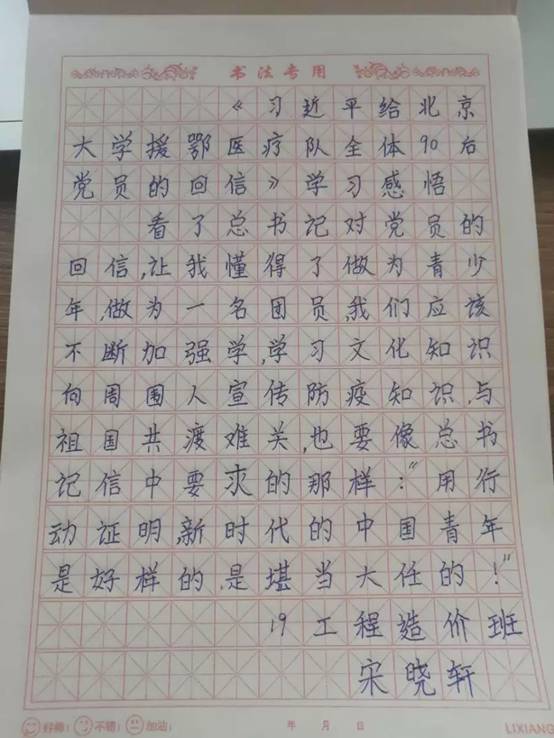 书法专用
《习近平给北京
大学援鄂医疗队全体90后
党员的回信》学习感悟
看了总书记对党员的
回信,让我懂得了做为青少
年,做为一名团员,我们应该
不断加强学,学习文化知识
向周围人宣传防疫知识,与
祖国共渡难关,也要像总书
记信中要求的那样:“用行
动证明,新时代的中国青年
是好样的,是堪当大任的!”
19工程造价班
宋晓轩
好棒: 不错: 加油: 年 月 日 LIXIANG